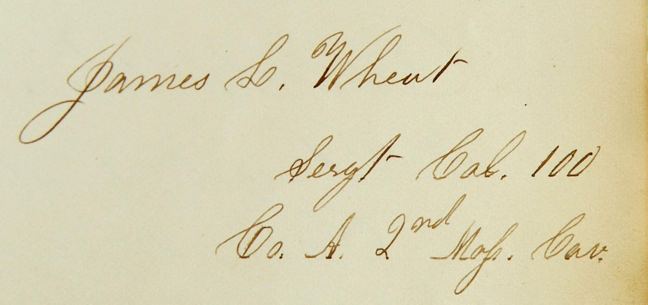 James L. Wheat
Sergt Cal. 100
Co. A. 2nd Mass. Cav.